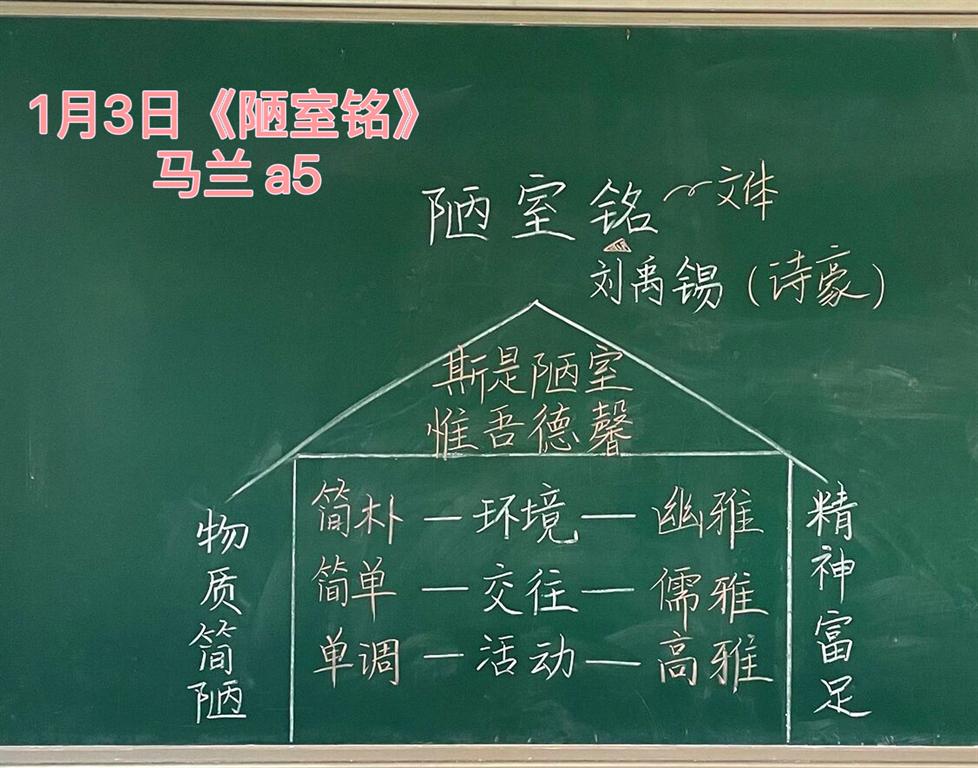 1月3日《陋室铭》
马兰 a5
陋室铭 文体
刘禹锡(诗豪)
斯是陋室
惟吾德馨
简朴—环境—幽雅
简单—交往—儒雅
单调—活动—高雅
物质简陋
精神富足